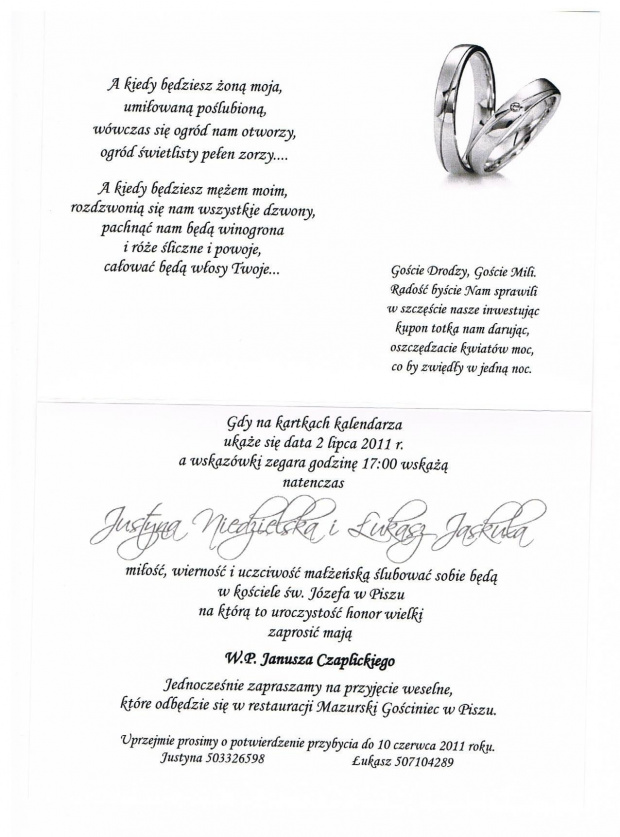 A kiedy będziesz żoną moja,
umiłowaną poślubioną,
wówczas się ogród nam otworzy,
ogród świetlisty pełen zorzy....
A kiedy będziesz mężem moim,
rozdzwonią się nam wszystkie dzwony,
pachnąć nam będą winogrona
i róże śliczne i powoje,
całować będą włosy Twoje...
Goście Drodzy, Goście Mili.
Radość byście Nam sprawili
w szczęście nasze inwestując
kupon totka nam darując,
oszczędzacie kwiatów moc,
co by zwiędły w jedną noc.
Gdy na kartkach kalendarza
ukaże się data 2 lipca 2011 r.
a wskazówki zegara godzinę 17:00 wskażą
natenczas
Justyna Niedzielska i Łukasz Jaskuła
miłość, wierność i uczciwość małżeńską ślubować sobie będą
w kościele św. Józefa w Piszu
na którą to uroczystość honor wielki
zaprosić mają
W.P. Janusza Czaplickiego
Jednocześnie zapraszamy na przyjęcie weselne,
które odbędzie się w restauracji Mazurski Gościniec w Piszu.
Uprzejmie prosimy o potwierdzenie przybycia do 10 czerwca 2011 roku.
Justyna 503326598 Łukasz 507104289